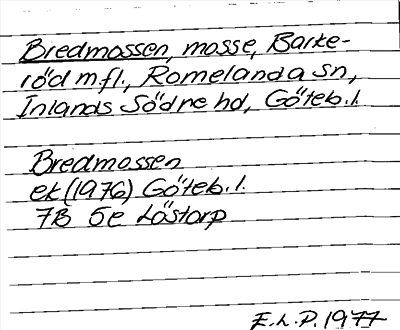 Bredmossen, mosse, Barke-
röd m.fl., Romelanda sn,
Inlands Södre hd, Göteb.l.
Bredmossen
ek (1976) Göteb.l.
7B 5e Löstorp
E.L.P. 1977